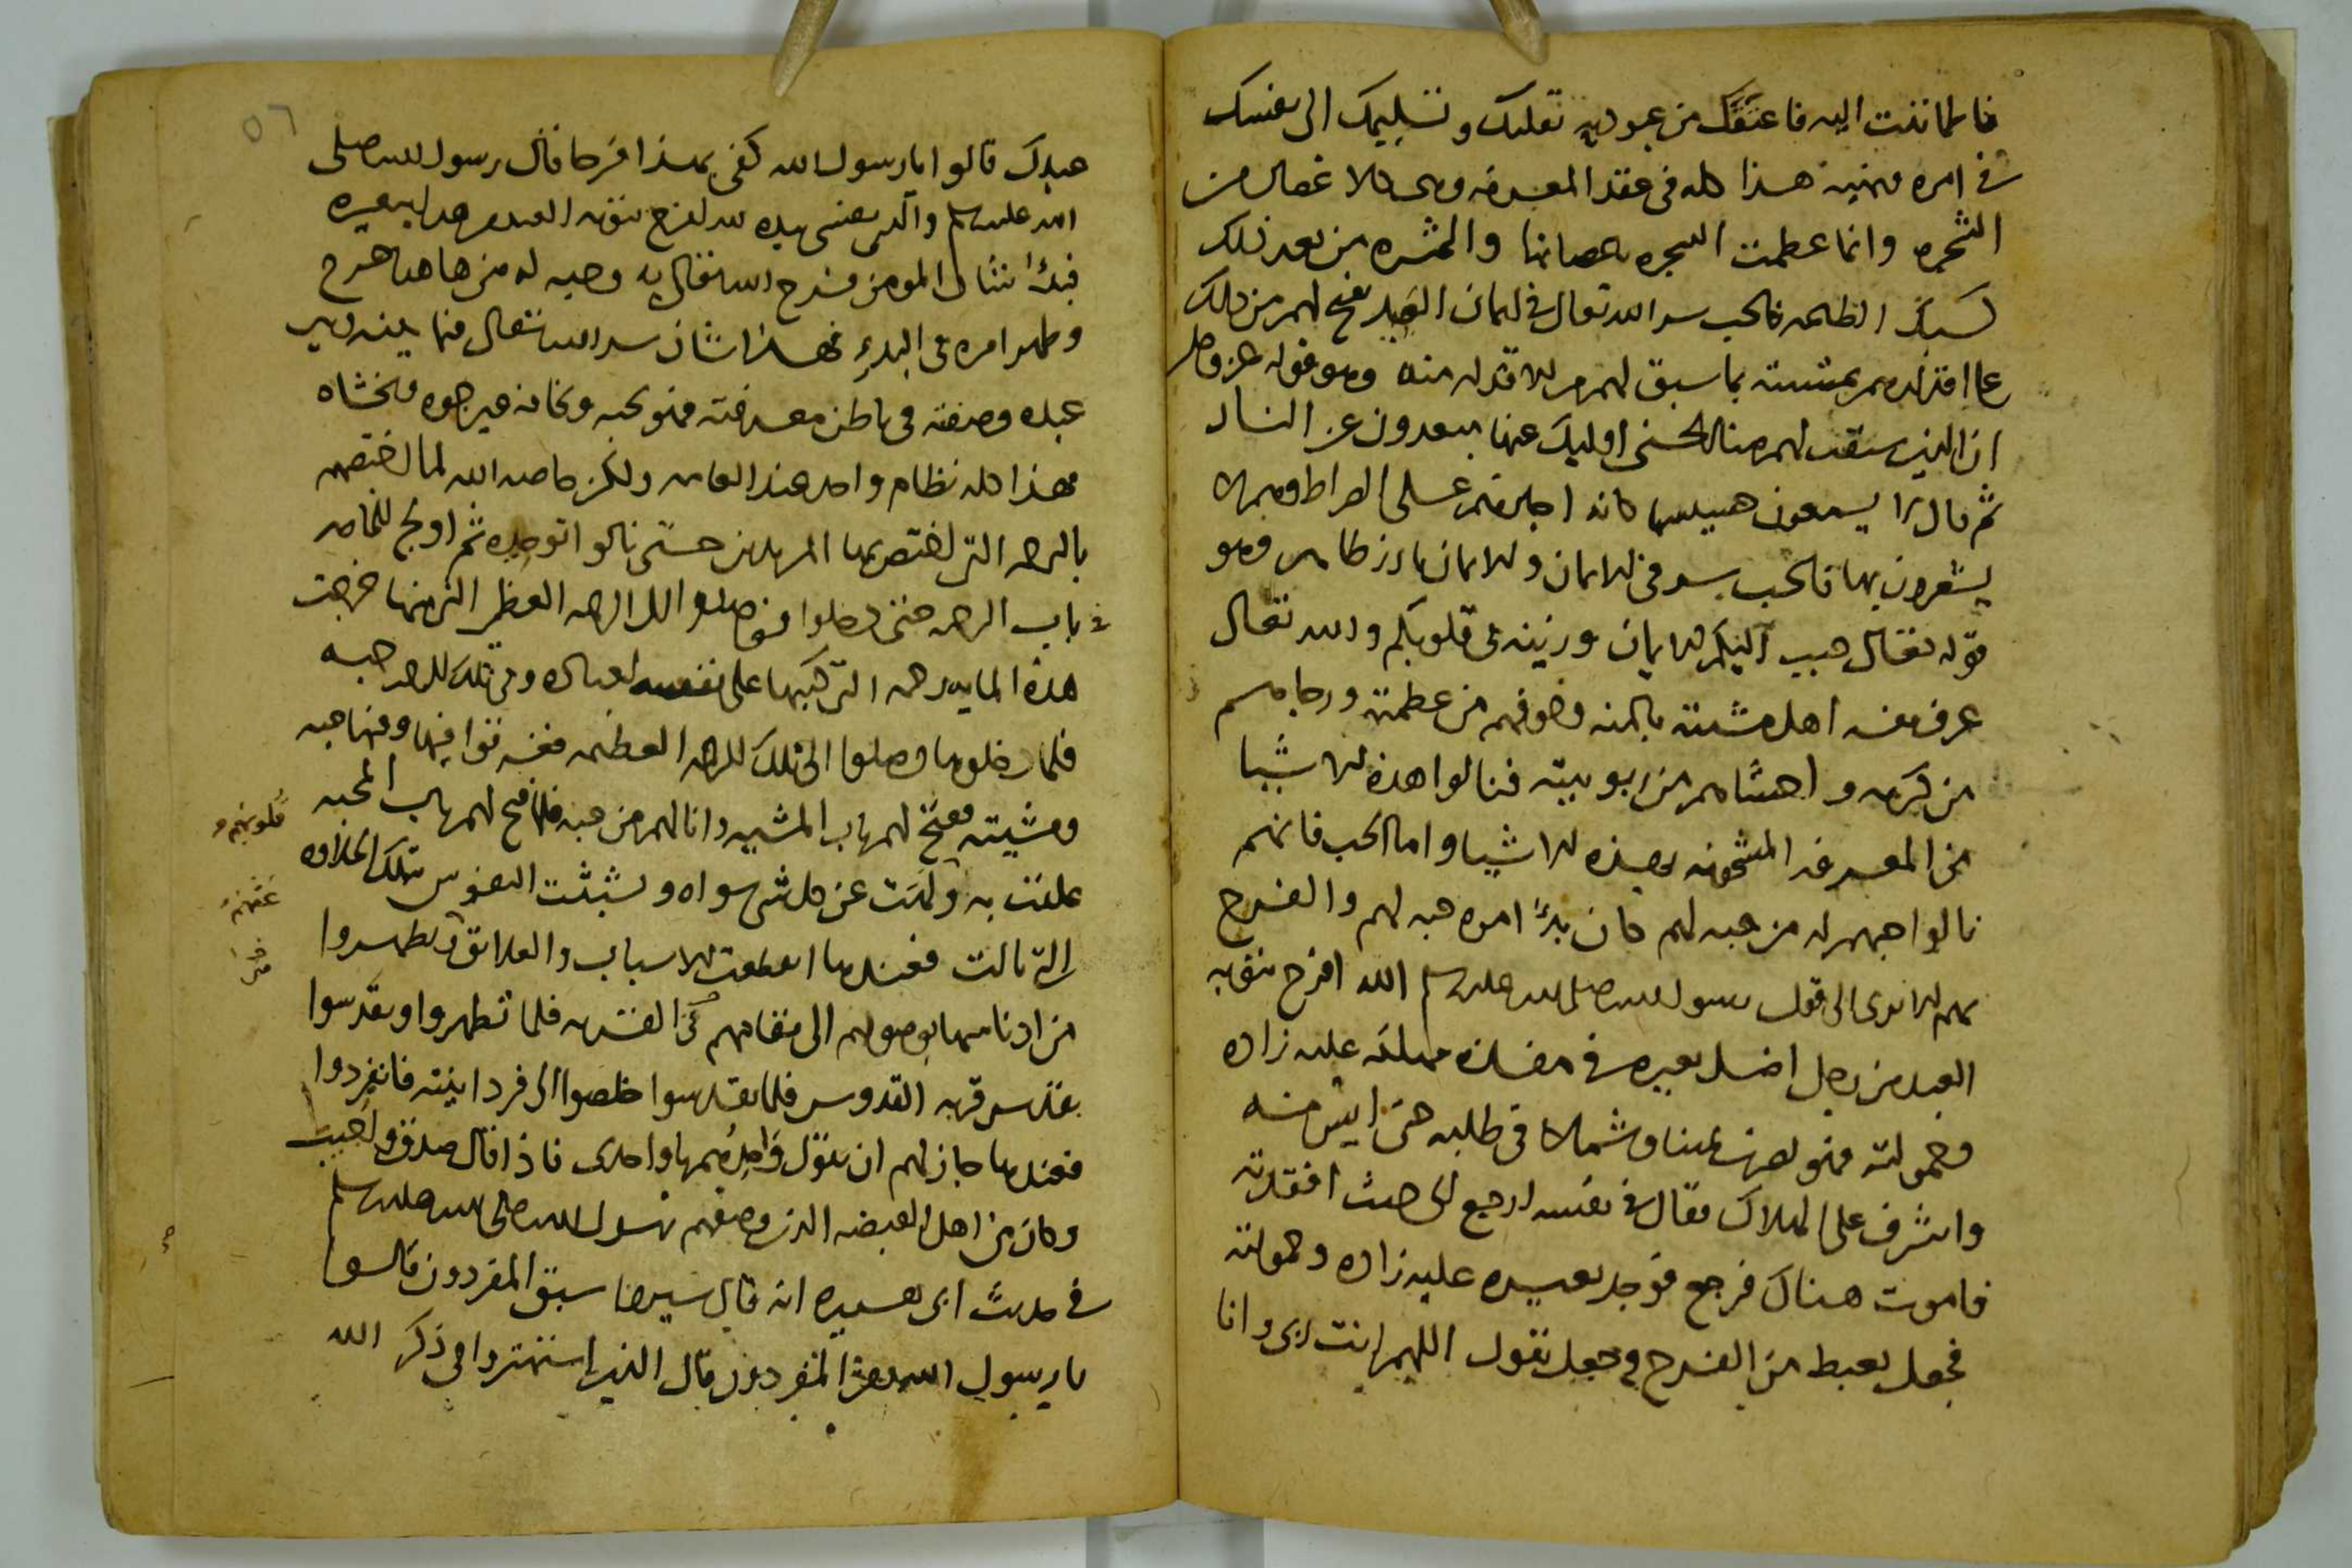 فاطمانت اليه فاعتقك من عبوديه تقلبك وتسليمك الى نفسك
في امره ونهيه هذا كله في عقد المعرفه وهى كالاغصان من
الشجره وانما عظمت الشجره باغصانها والثمره من بعد ذلك
فالحب سر الله تعالى في ايمان العبيد يفتح لهم من ذلك
على اقدارهم بمشيته بما سبق لهم من الاقدار منه وهو قوله عز وجل
ان الذين سبقت لهم منا الحسنى اوليك عنها مبعدون عن النار
ثم قال لا يسمعون حسيسها كانه اجازهم على الصراط وهم لا
يشعرون بها فالحب سر في الايمان والايمان بارز ظاهر وهو
قوله تعالى حبب اليكم الايمان وزينه في قلوبكم والله تعالى
عرف نفسه اهل مشيته بالمنه وخوفهم من عظمته ورجاهم
من كرمه واحشامهم من ربوبيته فنالوا هذه الاشيا
من المعرفه المشحونه بهذه الاشيا واما الحب فانهم
نالوا حبهم له من حبه لهم كان بدأ امره حبه لهم والفرح
بهم الا ترى الى قول رسول الله صلى الله عليه وسلم الله افرح بتوبه
العبد من رجل اضل بعيره في مفازه مهلكه عليه زاده
وحمولته فهو يضرب يمينا وشمالا في طلبه حتى ايس منه
واشرف على الهلاك فقال في نفسه ارجع الى حيث افتقدته
فاموت هناك فرجع فوجد بعيره عليه زاده وحمولته
فجعل يغبط من الفرح وجعل يقول اللهم انت ربى وانا
٥٦
عبدك قالوا يا رسول الله كفى بهذا فرحا فقال رسول الله صلى
الله عليه وسلم والذى نفسى بيده لله افرح بتوبه العبد من هذا ببعيره
فبدأ شان المومن فرح الله تعالى به وحبه له من هاهنا خرج
وظهر امره في البدء فهذا شان سر الله تعالى فيما بينه وبين
عبده وصنعته في باطن معرفته فهو يحبه ويخافه ويرجوه ويخشاه
فهذا كله نظام واحد عند العامه ولكن خاصه الله لما اختصهم
بالرحمه التى اختص بها المرسلين حتى نالوا توحيده ثم اولج للخاصه
باب الرحمه حتى دخلوا فوصلوا الى الرحمه العظمى التى منها خرجت
هذه المايه رحمه التى كتبها على نفسه لعباده وفي تلك الرحمه حبه
فلما دخلوها وصلوا الى تلك الرحمه العظيمه فغرقوا فيها وفيها حبه
ومشيته ففتح لهم باب المشيه وانالهم من حبه فلما فتح لهم باب المحبه
علقت به ولهت عن كل شى سواه وتشبثت النفوس بتلك الحلاوه
قلوبهم و
التى نالت فعندها انقطعت الاسباب والعلائق وتطهروا
عنهم
من ادناسها بوصولهم الى مقامهم في القربه فلما تطهروا وتقدسوا
بقدس قربه القدوس فلما تقدسوا خلصوا الى فردانيته فانفردوا
فعندها جاز لهم ان يقول واحدهم يا واحدى فاذا قال صدق واجيب
وكان من اهل القبضه الذين وصفهم رسول الله صلى الله عليه وسلم
في حديث ابى هريره انه قال سيروا سبق المفردون قالوا
يا رسول الله ومن المفردون قال الذين استهتروا في ذكر الله